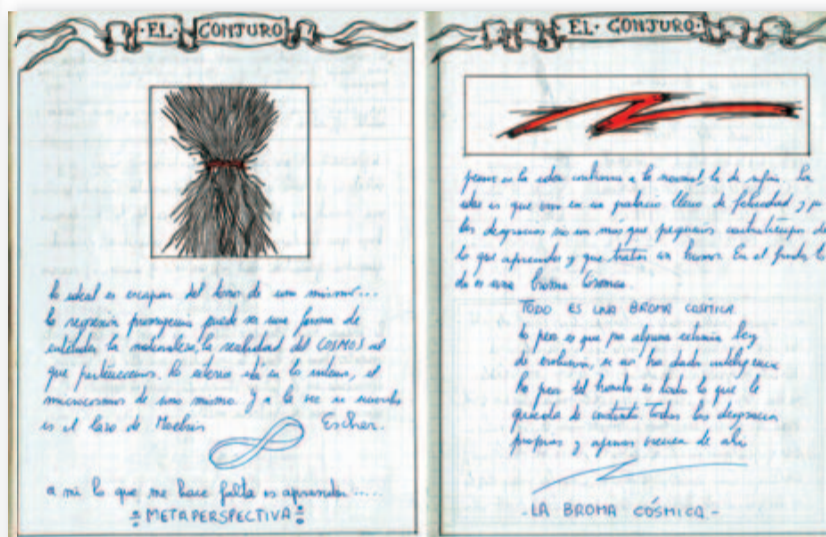 ·EL· CONJURO
lo ideal es escapar del lazo de uno mismo...
la regresión puede ser una forma de
entender la naturaleza, la realidad del COSMOS al
que pertenecemos. lo externo está en lo interno, el
microcosmos de uno mismo. Y a la vez se
es el lazo de Moebius Escher.
a mi lo que me hace falta es aprender....
METAPERSPECTIVA
EL· CONJURO·
pienso en la idea contraria a la normal, la de sufrir. La
idea es que uno en un palacio lleno de felicidad y
las desgracias no son más que pequeños contratiempos de
lo que aprendes y que tratas con humor. En el fondo to
do es una broma cósmica.
TODO ES UNA BROMA COSMICA
lo peor es que por alguna extraña ley
de evolución, se nos ha dado inteligencia
lo peor del mundo es todo lo que le
queda de contento todas las desgracias
propias y ajenas de ahí
-LA BROMA CÓSMICA-